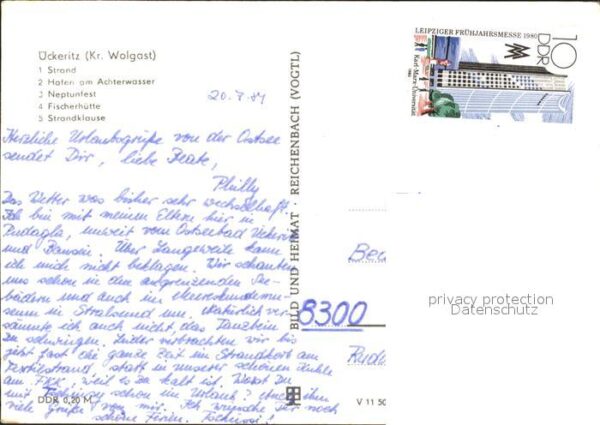 Ückeritz (Kr. Wolgast)
1 Strand
2 Hafen am Achterwasser
3 Neptunfest
4 Fischerhütte
5 Strandklause
20.7.81
Herzliche Urlaubsgrüße von der Ostsee
sendet Dir, liebe Beate,
Philly
Das Wetter war bisher sehr wechselhaft.
Ich bin mit meinen Eltern hier in
Pudagla, unweit vom Ostseebad Ückeritz
und Bansin. Über Langeweile kann
ich mich nicht beklagen. Wir schauten
uns schon in den angrenzenden See-
bädern und auch im Meereskundemu-
seum in Stralsund um. Natürlich ver-
säumte ich auch nicht, das Tanzbein
zu schwingen. Leider verbrachten wir bis
jetzt fast die ganze Zeit im Strandkorb am
Textilstrand, statt in unserer schönen
am FKK, weil es zu kalt ist. Warst Du
mit schon im Urlaub? ihm
viele Grüße von mir. Ich wünsche Dir noch
schöne Ferien. Tschüssi!
DDR 0,20 M
BILD UND HEIMAT · REICHENBACH (VOGTL)
V 11 50
LEIPZIGER FRÜHJAHRSMESSE 1980
10
DDR
MM
Karl-Marx-Universität
1980
8300
privacy protection
Datenschutz